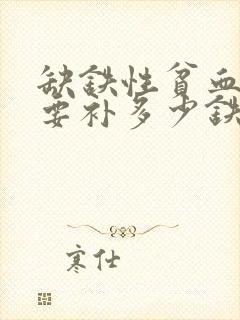 缺铁性贫血
要补多少铁
寒仕